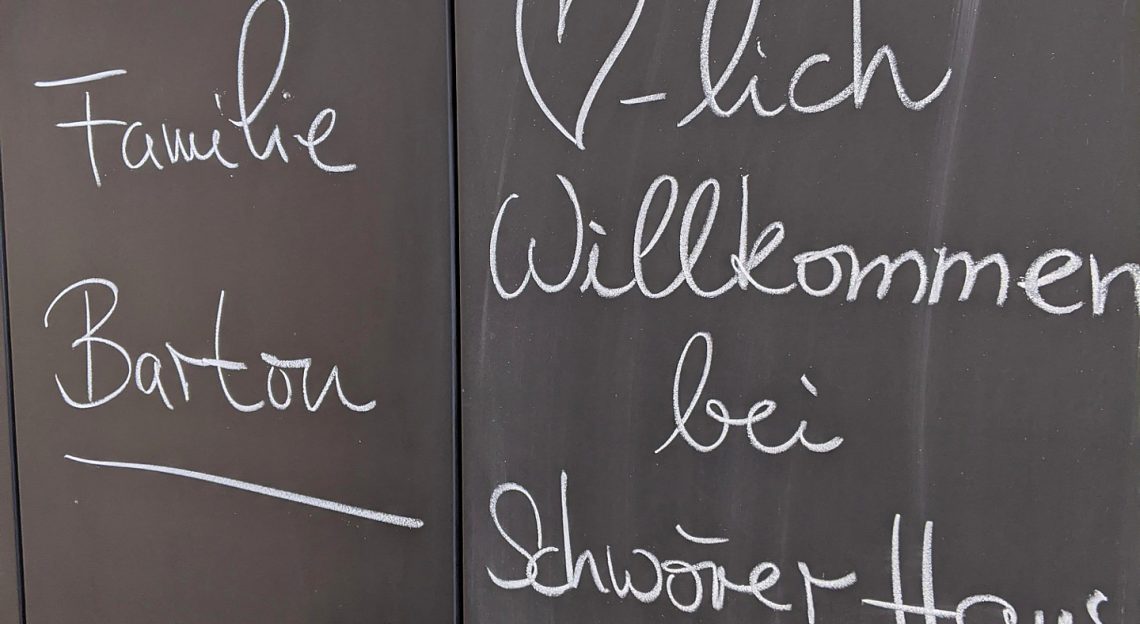 Familie
Barton
♡-lich
Willkommen
bei
Schwörer Haus